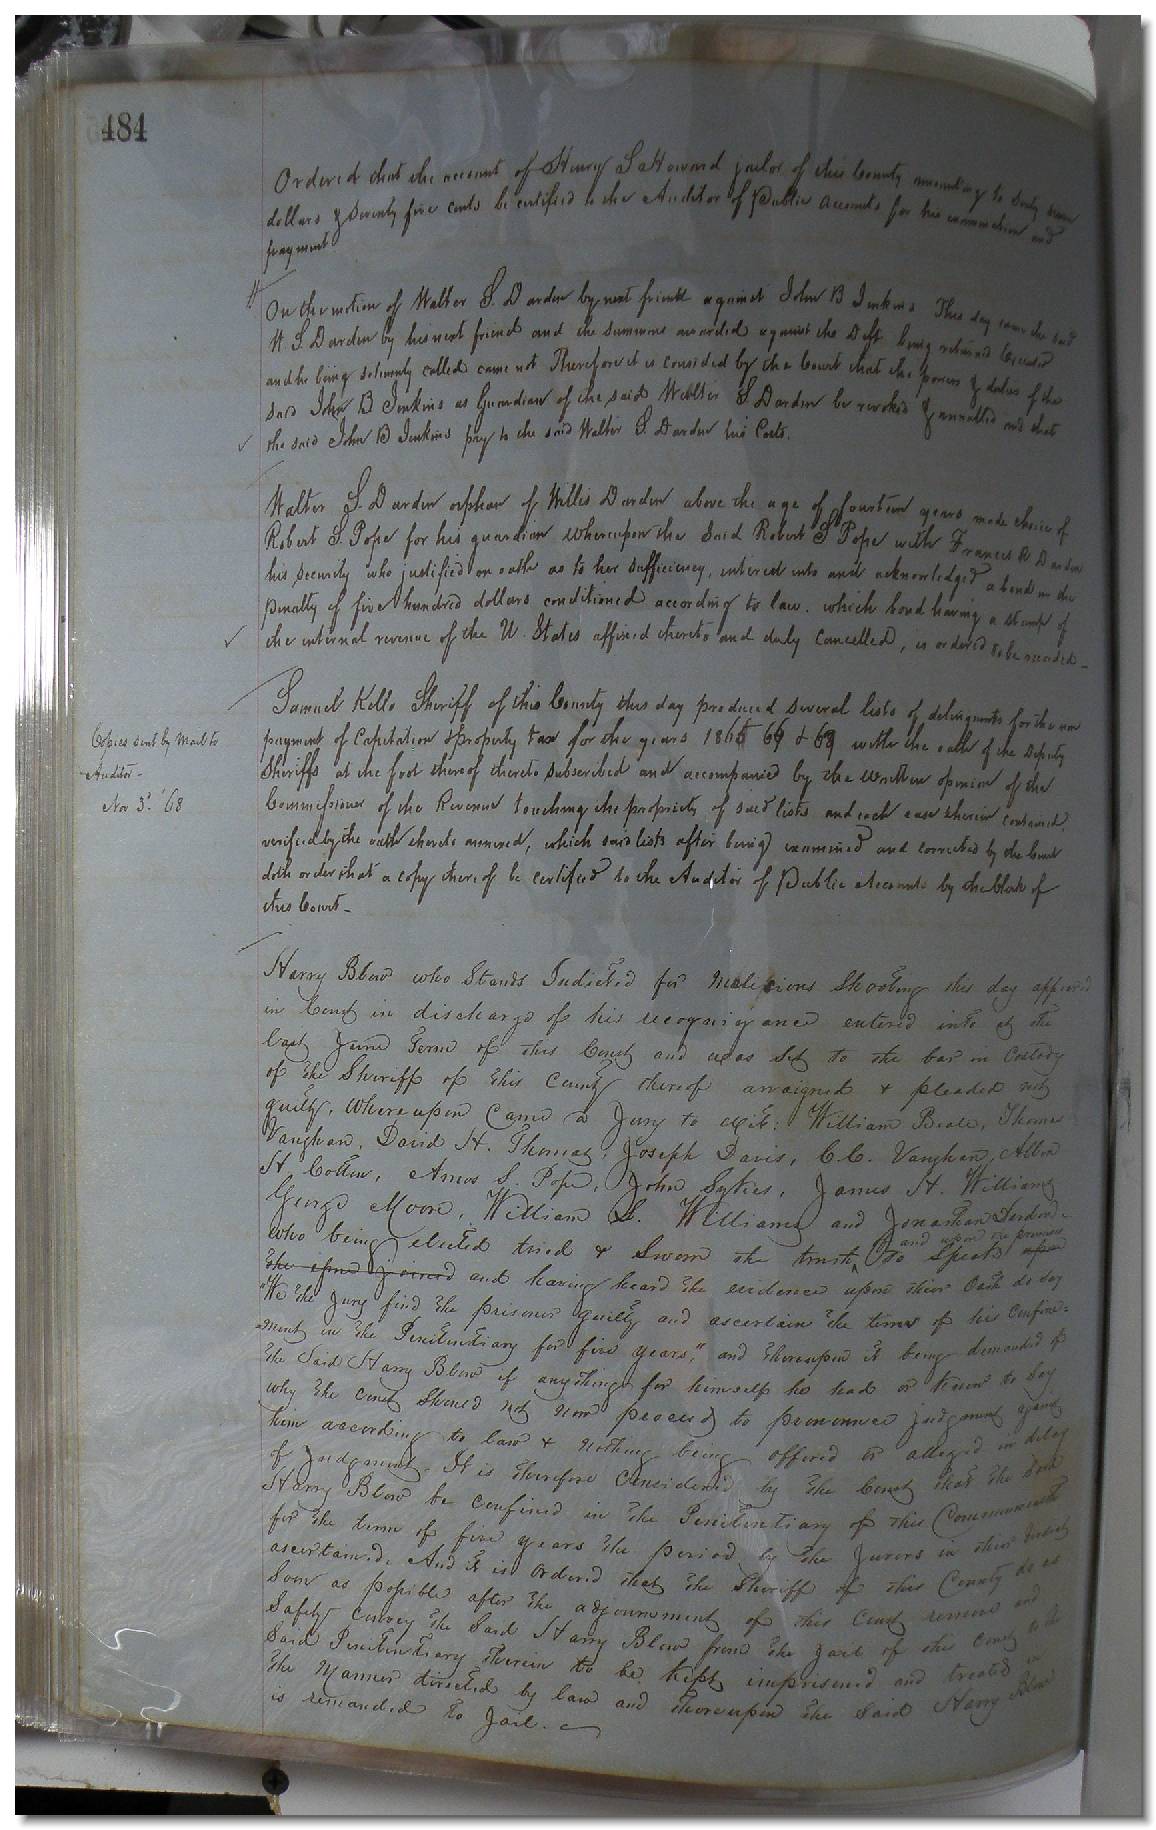 484
Ordered that the account of Henry S Howard jailor of this County amounting to Sixty seven
dollars & Seventy five cents be certified to the Auditor of Public Accounts for his examination and
payment.
On the motion of Walter S. Darden by next friend against John B Jenkins This day came the said
W. S. Darden by his next friend and the summons awarded against the Deft being returned Executed
and he being solemnly called came not Therefore it is consided by the Court that the powers & duties of the
said John B Jenkins as Guardian of the said Walter S Darden be revoked & annulled and that
the said John B Jenkins pay to the said Walter S. Darden his Costs.
Walter S. Darden orphan of Willis Darden above the age of fourteen years made choice of
Robert S. Pope for his guardian whereupon the said Robert S Pope with Frances R Darden
his security who justified on oath as to her sufficiency, entered into and acknowledged a bond in the
penalty of five hundred dollars conditioned according to law. which bond having a stamp of
the internal revenue of the U. States affixed thereto and duly cancelled, is ordered to be recorded_
Samuel Kello Sheriff of this County this day produced several lists of delinquents for the non
payment of Capitation & property tax for the years 186 & with the oath of the Deputy
Copies sent by Mail to
Sheriffs at the foot thereof thereto subscribed and accompanied by the written opinion of the
Auditor -
Commissioner of the Revenue touching the propriety of said lists and each case therein contained,
Nov 3d. '68
verified by the oath thereto annexed, which said lists after being examined and corrected by the Court
doth order that a copy thereof be certified to the Auditor of Public Accounts by the Clerk of
this Court_
Harry Blow who Stands Indicted for Malicious Shooting this day appeared
in Court in discharge of his recognizance entered into at the
last June Term of this Court and was set to the bar in Custody
of the Sheriff of this County thereof arraigned & pleaded not
guilty, Whereupon came a Jury to wit: William Beale, Thomas
Vaughan, David H. Thomas, Joseph Davis, C.C. Vaughan, Albin
H. Cotton, Amos S. Pope, John Sykes, James H. Williams
George Moore, William L. Williams and Jonathan Darden
who being elected tried & Sworn the truth, to Speak upon
and upon the premises
the issue joined and having heard the evidence upon their Oath do say
"We the Jury find the prisoner guilty and ascertain the term of his confine-
-ment in the Penitentiary for five years," and thereupon it being demanded of
the Said Harry Blow if anything for himself he had or knew to say
why the court should not now proceed to pronounce judgment against
him according to law & nothing being offered or alleged in delay
of Judgment. It is therefore Considered by the Court that the Said
Harry Blow be confined in the Penitentiary of this Commonwealth
for the term of five years the period by the Jurors in their Verdict
ascertained. And it is Ordered that the Sheriff of this County do as
Soon as possible after the adjournment of this Court remove and
Safely convey the Said Harry Blow from the Jail of the County to the
Said Penitentiary therein to be kept, imprisoned and treated in
the Manner directed by law and thereupon the Said Harry Blow
is remanded to Jail.